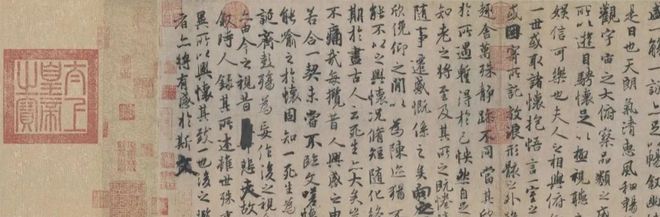 盛一觴一詠亦足以暢敘幽
是日也天朗氣清惠風和暢
觀宇宙之大俯察品類之盛
所以遊目騁懷足以極視聽
娛信可樂也夫人之相與俯仰
一世或取諸懷抱悟言一室之
或因寄所託放浪形骸之外
趣舍萬殊靜躁不同當其欣
於所遇蹔得於己怏然自足
知老之將至及其所之既惓
隨事遷感慨係之矣向之
欣俛仰之閒以為陳迹猶不
能不以之興懷況脩短隨化終
期於盡古人云死生亦大矣豈
不痛哉每攬昔人興感之由
若合一契未嘗不臨文嗟悼
能喻之於懷固知一死生為
誕齊彭殤為妄作後之視
亦由今之視昔悲夫故
敘時人錄其所述雖世殊事
異所以興懷其致一也後之攬
者亦將有感於斯文
太上皇帝之寶